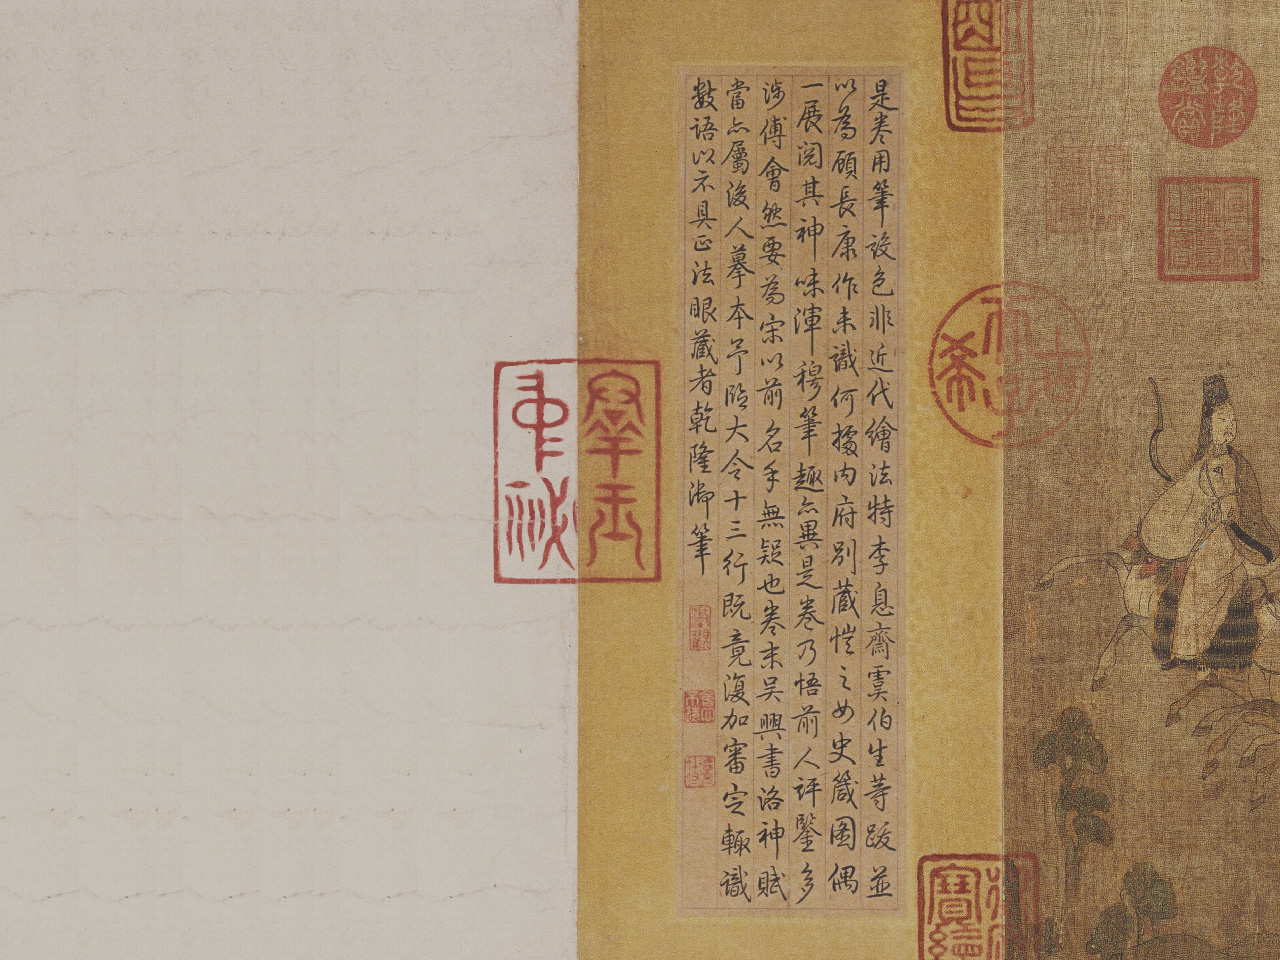 是卷用筆設色非近代繪法特李息齋虞伯生等跋並
以為顧長康作未識何據内府別藏愷之女史箴圖偶
一展閱其神味渾穆筆趣亦異是卷乃悟前人評鑒多
涉傅會然要為宋以前名手無疑也卷末吳興書洛神賦
當亦屬後人摹本芓臨大令十三行既竟復加審定輙識
数语以示具正法眼藏者乾隆御筆